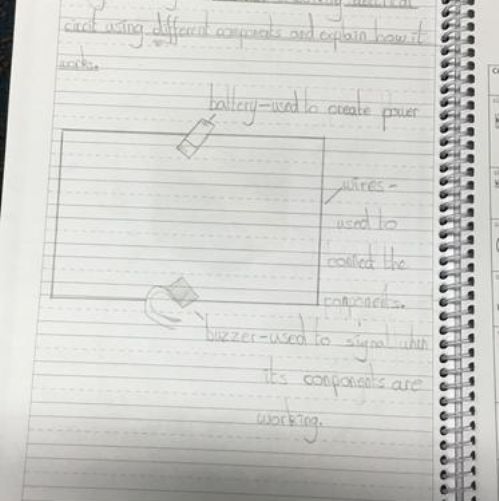 circuit using different components and explain how it
works.
battery-used to create power
wires-
used to
connect the
components.
buzzer-used to signal when
its components are
working.